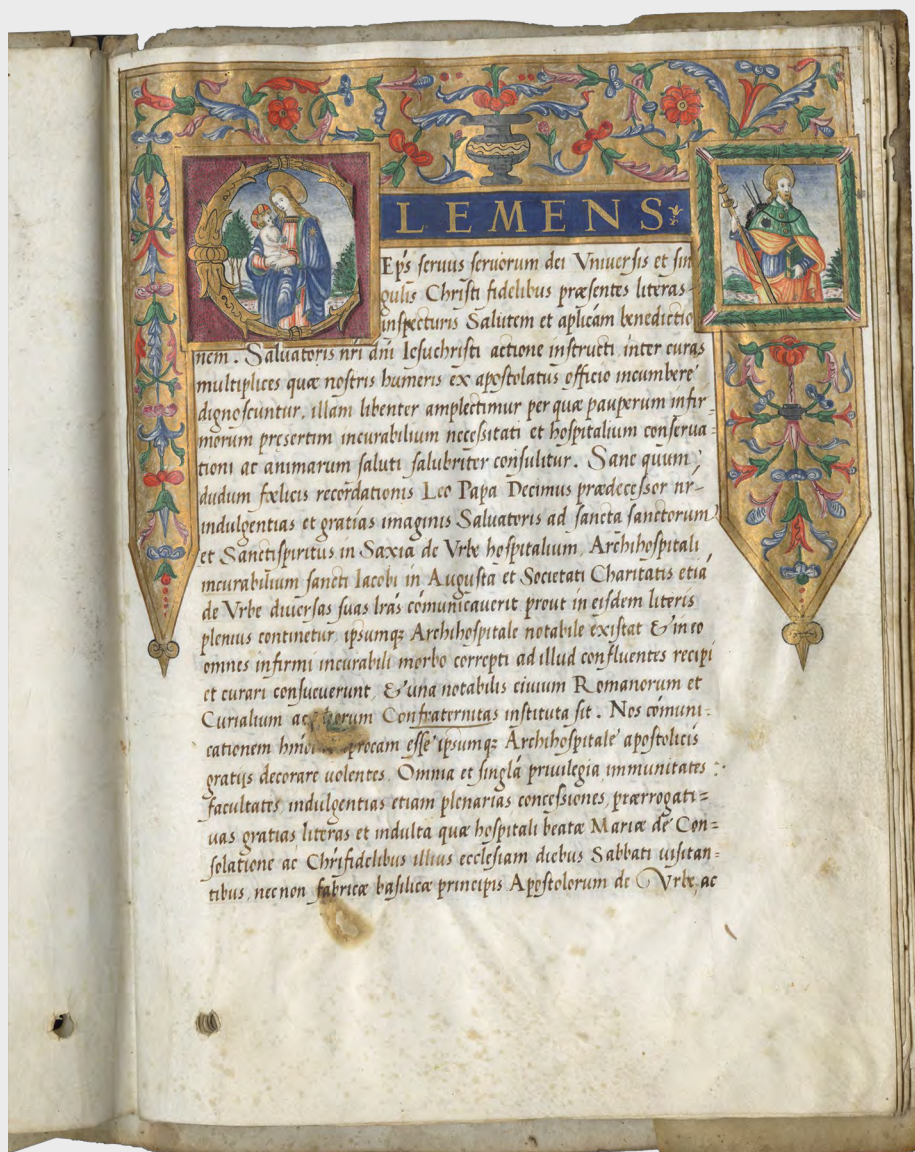 CLEMENS
Eps seruus seruorum dei Vniuersis et sin
gulis Christi fidelibus præsentes literas
inspecturis Salutem et aplicam benedictio
nem. Saluatoris nri dni Iesuchristi actione instructi inter curas
multiplices quæ nostris humeris ex apostolatus officio incumbere
dignoscuntur, illam libenter amplectimur per quæ pauperum infir
morum presertim incurabilium necessitati et hospitalium conserua=
tioni ac animarum saluti salubriter consulitur. Sane quum
dudum fœlicis recordationis Leo Papa Decimus prædecessor nr
indulgentias et gratias imaginis Saluatoris ad sancta sanctorum
et Sanctispiritus in Saxia de Vrbe hospitalium, Archihospitali
incurabilium sancti Iacobi in Augusta et Societati Charitatis etiā
de Vrbe diuersas suas lrās cōmunicauerit prout in eisdem literis
plenius continetur, ipsumq; Archihospitale notabile existat & in eo
omnes infirmi incurabili morbo correpti ad illud confluentes recipi
et curari consueuerunt, & una notabilis ciuium Romanorum et
Curialium ac Confraternitas instituta sit. Nos cōmuni=
cationem esse ipsumq; Archihospitale apostolicis
gratijs decorare uolentes, Omnia et singla priuilegia immunitates
facultates, indulgentias etiam plenarias concessiones, prærrogati=
uas gratias literas et indulta quæ hospitali beatæ Mariæ de Con=
solatione ac Chrifidelibus illius ecclesiam diebus Sabbati uisitan=
tibus, nec non fabricæ basilicæ principis Apostolorum de Vrbe, ac